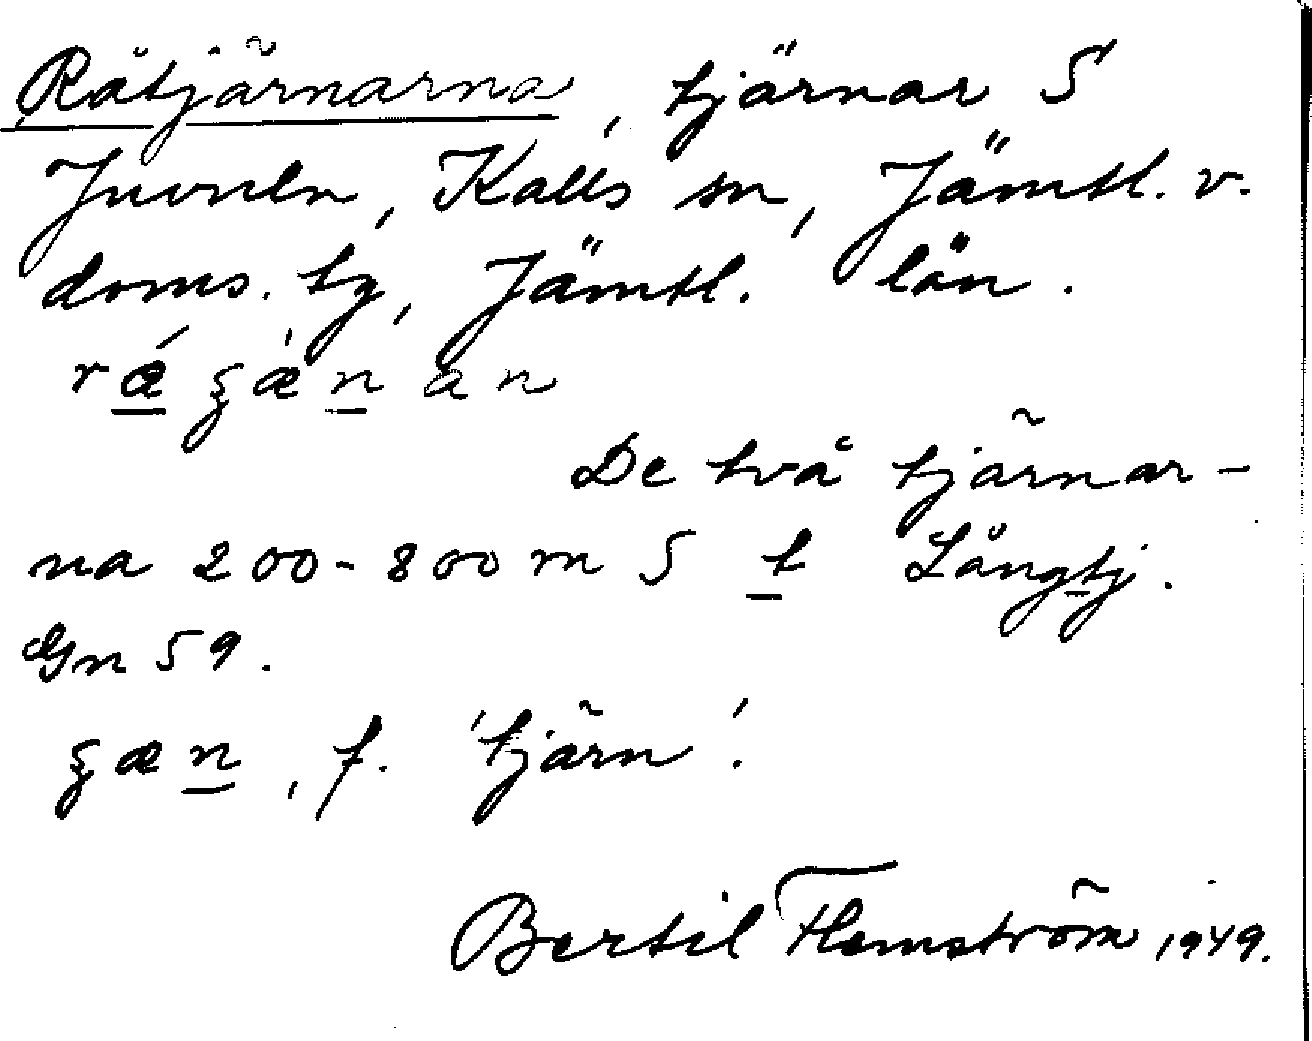 Råtjärnarna, tjärnar S
Juveln, Kalls sn, Jämtl. v.
doms. tg, Jämtl. län.
De två tjärnar-
na 200-800 m S t Långtj.
Gn 59.
, f. 'tjärn'.
Bertil Flemström 1949.